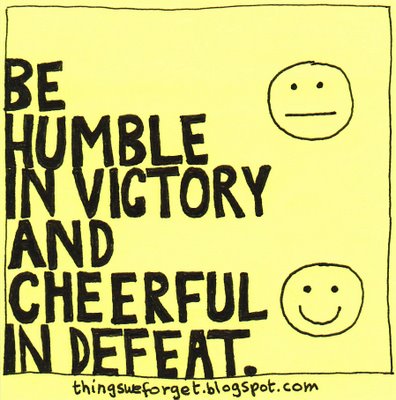 BE
HUMBLE
IN VICTORY
AND
CHEERFUL
IN DEFEAT.
thingsweforget.blogspot.com